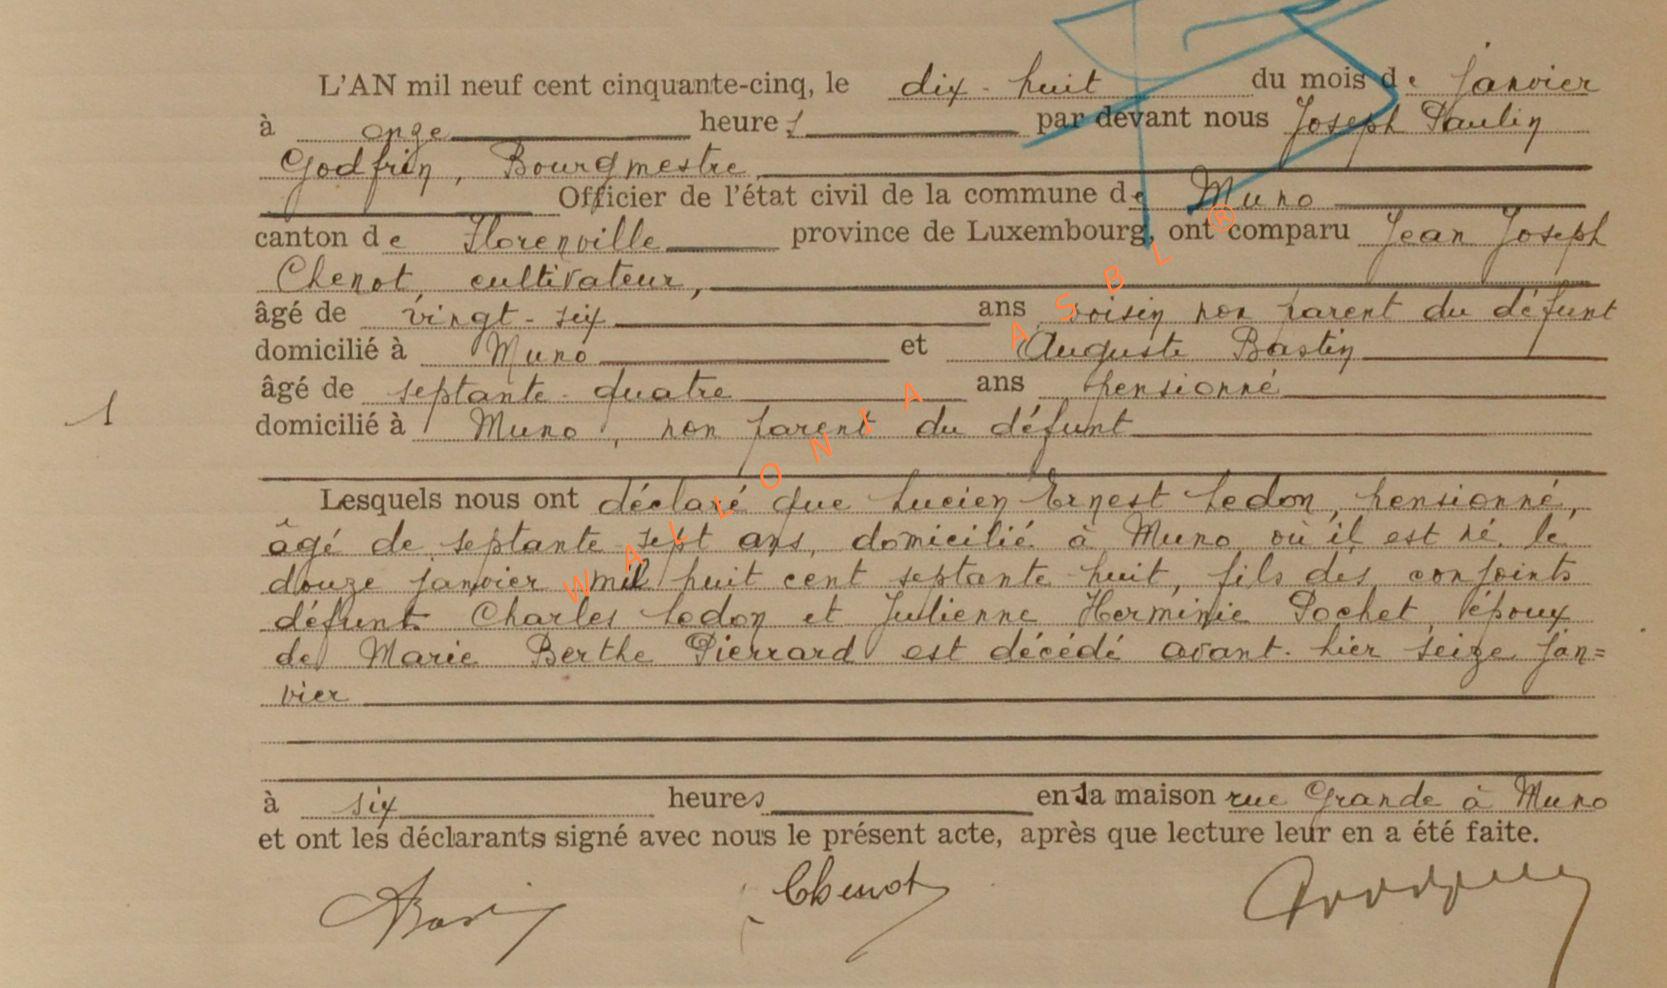 L'AN mil neuf cent cinquante-cinq, le dix-huit du mois de janvier
à onze heures par devant nous Joseph Paulin
Godfrin, Bourgmestre,
Officier de l'état civil de la commune de Muno
canton de Florenville province de Luxembourg, ont comparu Jean Joseph
Chenot, cultivateur,
âgé de vingt-six ans voisin non parent du défunt
domicilié à Muno et Auguste Bastin
âgé de septante-quatre ans pensionné
1
domicilié à Muno, non parent du défunt
Lesquels nous ont déclaré que Lucien Ernest Ledon, pensionné,
âgé de septante-sept ans, domicilié à Muno où il est né le
douze janvier mil huit cent septante-huit, fils des conjoints
défunt Charles Ledon et Julienne Herminie Pochet, époux
de Marie Berthe Pierrard est décédé avant-hier seize jan=
vier
à six heures en la maison rue Grande à Muno
et ont les déclarants signé avec nous le présent acte, après que lecture leur en a été faite.
Chenot
WALLONIA ASBL ®